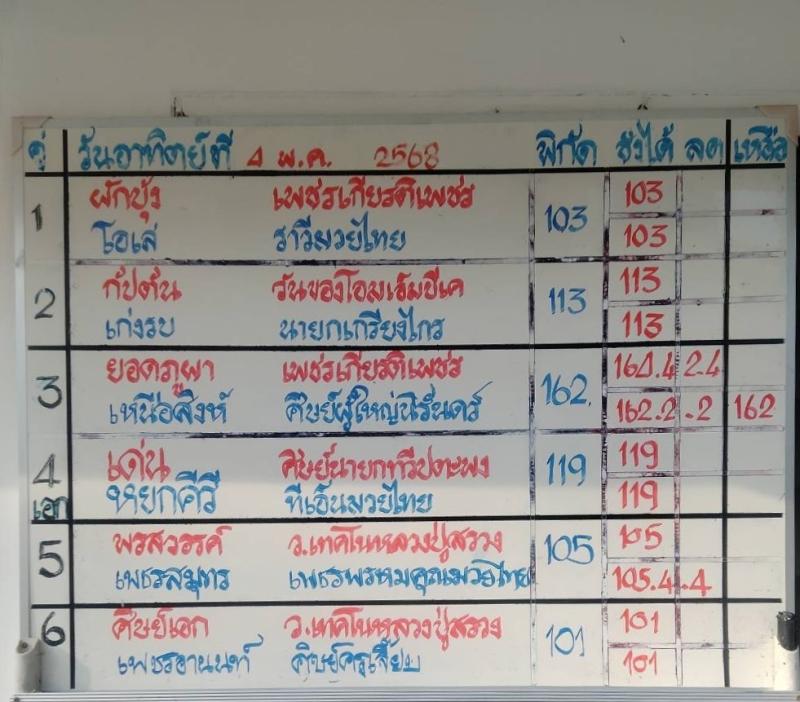 คู่ วันอาทิตย์ที่ 4 พ.ค. 2568 พิกัด ชั่งได้ ลด เหลือ
1 ผักบุ้ง เพชรเกียรติเพชร 103 103
โอเล่ ราวีมวยไทย 103
2 กัปตัน วันของโอมเอ็มอีเค 113 113
เก่งรบ นายกเกรียงไกร 113
3 ยอดภูผา เพชรเกียรติเพชร 162. 164.4 2.4
เหนือสิงห์ ศิษย์ผู้ใหญ่นิรันดร์ 162.2 .2 162
4 เด่น ศิษย์นายกทวีปตะพง 119 119
เอก หยกคีรี ทีเอ็นมวยไทย 119
5 พรสวรรค์ ว.เทคโนหลวงปู่สรวง 105 105
เพชรสมุทร เพชรพรหมคุณมวยไทย 105.4 .4
6 ศิษย์เอก ว.เทคโนหลวงปู่สรวง 101 101
เพชรอานนท์ ศิษย์ครูเจี๊ยบ 101